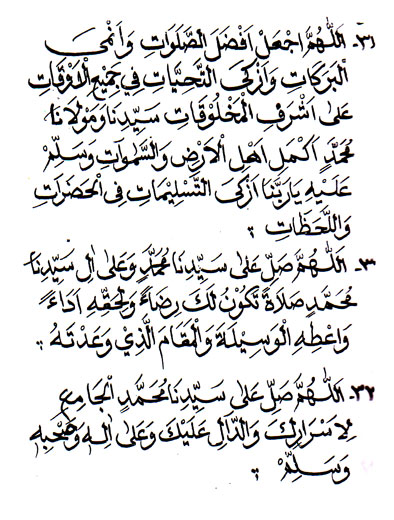 ٣١- اَللّٰهُمَّ اجْعَلْ اَفْضَلَ الصَّلَوَاتِ وَاَنْمَى
الْبَرَكَاتِ وَاَزْكَى التَّحِيَّاتِ فِي جَمِيْعِ الْاَوْقَاتِ
عَلٰى اَشْرَفِ الْمَخْلُوْقَاتِ سَيِّدِنَا وَمَوْلَانَا
مُحَمَّدٍ اَكْمَلِ اَهْلِ الْاَرْضِ وَالسَّمٰوَاتِ وَسَلِّمْ
عَلَيْهِ يَارَبَّنَا اَزْكَى التَّسْلِيْمَاتِ فِى الْحَضَرَاتِ
وَاللَّحَظَاتِ
٣- اَللّٰهُمَّ صَلِّ عَلٰى سَيِّدِنَا مُحَمَّدٍ وَعَلٰى اٰلِ سَيِّدِنَا
مُحَمَّدٍ صَلَاةً تَكُوْنُ لَكَ رِضَاءً وَلِحَقِّهِ اَدَاءً
وَاَعْطِهِ الْوَسِيْلَةَ وَالْمَقَامَ الَّذِيْ وَعَدْتَهُ
٣٢- اَللّٰهُمَّ صَلِّ عَلٰى سَيِّدِنَا مُحَمَّدٍ الْجَامِعِ
لِاَسْرَارِكَ وَالدَّالِ عَلَيْكَ وَعَلٰى اٰلِهٖ وَصَحْبِهٖ
وَسَلِّمْ